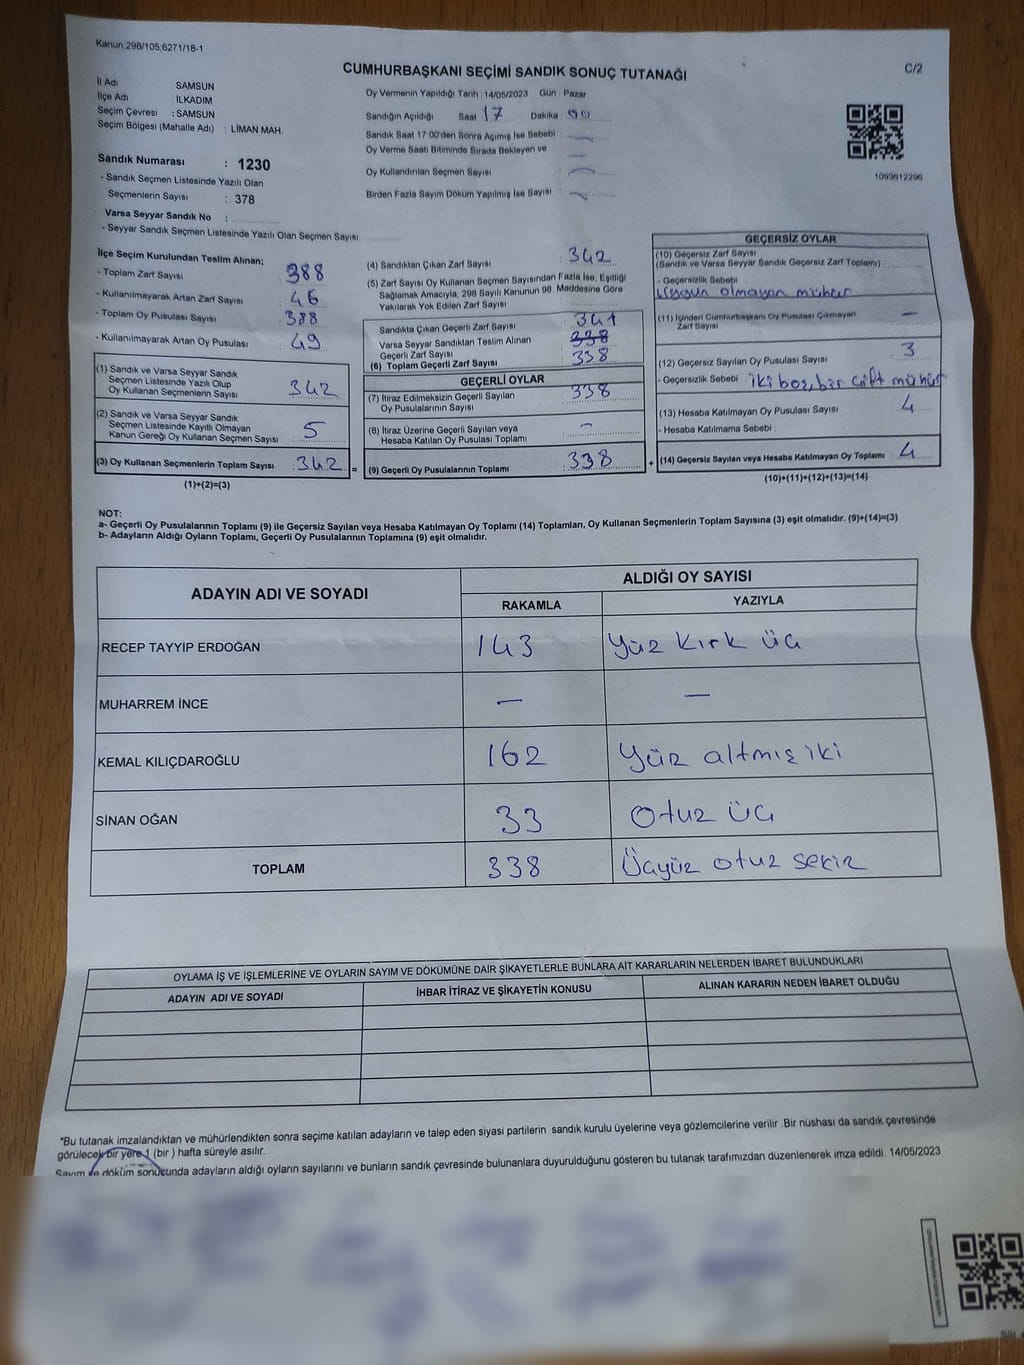 Kanun:298/105;6271/18-1
C/2
CUMHURBAŞKANI SEÇİMİ SANDIK SONUÇ TUTANAĞI
İl Adı : SAMSUN
İlçe Adı : İLKADIM
Seçim Çevresi : SAMSUN
Seçim Bölgesi (Mahalle Adı) : LİMAN MAH.
Sandık Numarası : 1230
- Sandık Seçmen Listesinde Yazılı Olan
Seçmenlerin Sayısı : 378
Varsa Seyyar Sandık No :
- Seyyar Sandık Seçmen Listesinde Yazılı Olan Seçmen Sayısı:
Oy Vermenin Yapıldığı Tarih :14/05/2023 Gün : Pazar
Sandığın Açıldığı Saat 17 Dakika : 00
Sandık Saat 17:00'den Sonra Açılmış İse Sebebi :
Oy Verme Saati Bitiminde Sırada Bekleyen ve
Oy Kullandırılan Seçmen Sayısı :
Birden Fazla Sayım Döküm Yapılmış İse Sayısı :
1093612296
İlçe Seçim Kurulundan Teslim Alınan;
- Toplam Zarf Sayısı : 388
- Kullanılmayarak Artan Zarf Sayısı : 46
- Toplam Oy Pusulası Sayısı : 388
- Kullanılmayarak Artan Oy Pusulası : 49
(1) Sandık ve Varsa Seyyar Sandık
Seçmen Listesinde Yazılı Olup
Oy Kullanan Seçmenlerin Sayısı : 342
(2) Sandık ve Varsa Seyyar Sandık
Seçmen Listesinde Kayıtlı Olmayan
Kanun Gereği Oy Kullanan Seçmen Sayısı : 5
(3) Oy Kullanan Seçmenlerin Toplam Sayısı : 342
(1)+(2)=(3)
(4) Sandıktan Çıkan Zarf Sayısı : 342
(5) Zarf Sayısı Oy Kullanan Seçmen Sayısından Fazla İse, Eşitliği
Sağlamak Amacıyla, 298 Sayılı Kanunun 98. Maddesine Göre
Yakılarak Yok Edilen Zarf Sayısı :
Sandıkta Çıkan Geçerli Zarf Sayısı : 341
Varsa Seyyar Sandıktan Teslim Alınan 338
Geçerli Zarf Sayısı
(6) Toplam Geçerli Zarf Sayısı : 338
GEÇERLİ OYLAR
(7) İtiraz Edilmeksizin Geçerli Sayılan 338
Oy Pusulalarının Sayısı :
(8) İtiraz Üzerine Geçerli Sayılan veya
Hesaba Katılan Oy Pusulası Toplamı : -
= (9) Geçerli Oy Pusulalarının Toplamı : 338
GEÇERSİZ OYLAR
(10) Geçersiz Zarf Sayısı
(Sandık ve Varsa Seyyar Sandık Geçersiz Zarf Toplamı) :
- Geçersizlik Sebebi :
uygun olmayan mühür
(11) İçinden Cumhurbaşkanı Oy Pusulası Çıkmayan
Zarf Sayısı : —
(12) Geçersiz Sayılan Oy Pusulası Sayısı : 3
- Geçersizlik Sebebi : iki boş, bir çift mühür
(13) Hesaba Katılmayan Oy Pusulası Sayısı : 4
- Hesaba Katılmama Sebebi :
+ (14) Geçersiz Sayılan veya Hesaba Katılmayan Oy Toplamı : 4
(10)+(11)+(12)+(13)=(14)
NOT:
a- Geçerli Oy Pusulalarının Toplamı (9) ile Geçersiz Sayılan veya Hesaba Katılmayan Oy Toplamı (14) Toplamları, Oy Kullanan Seçmenlerin Toplam Sayısına (3) eşit olmalıdır. (9)+(14)=(3)
b- Adayların Aldığı Oyların Toplamı, Geçerli Oy Pusulalarının Toplamına (9) eşit olmalıdır.
ADAYIN ADI VE SOYADI
ALDIĞI OY SAYISI
RAKAMLA YAZIYLA
RECEP TAYYİP ERDOĞAN 143 Yüz Kırk üç
MUHARREM İNCE — —
KEMAL KILIÇDAROĞLU 162 Yüz altmış iki
SİNAN OĞAN 33 Otuz üç
TOPLAM 338 Üçyüz otuz sekiz
OYLAMA İŞ VE İŞLEMLERİNE VE OYLARIN SAYIM VE DÖKÜMÜNE DAİR ŞİKAYETLERLE BUNLARA AİT KARARLARIN NELERDEN İBARET BULUNDUKLARI
ADAYIN ADI VE SOYADI İHBAR İTİRAZ VE ŞİKAYETİN KONUSU ALINAN KARARIN NEDEN İBARET OLDUĞU
"Bu tutanak imzalandıktan ve mühürlendikten sonra seçime katılan adayların ve talep eden siyasi partilerin sandık kurulu üyelerine veya gözlemcilerine verilir .Bir nüshası da sandık çevresinde
görülecek bir yere 1 (bir ) hafta süreyle asılır.
Sayım ve döküm sonucunda adayların aldığı oyların sayılarını ve bunların sandık çevresinde bulunanlara duyurulduğunu gösteren bu tutanak tarafımızdan düzenlenerek imza edildi. 14/05/2023